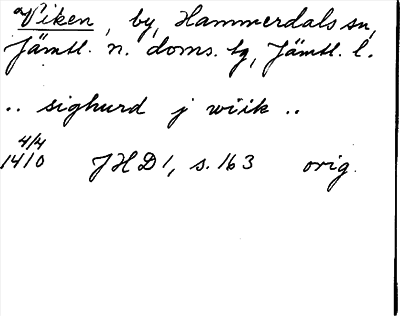 Viken, by, Hammerdals sn,
Jämtl. n. doms. tg, Jämtl. l.
.. sighurd j wiik ..
4/4
1410 JHD 1, s. 163 orig.